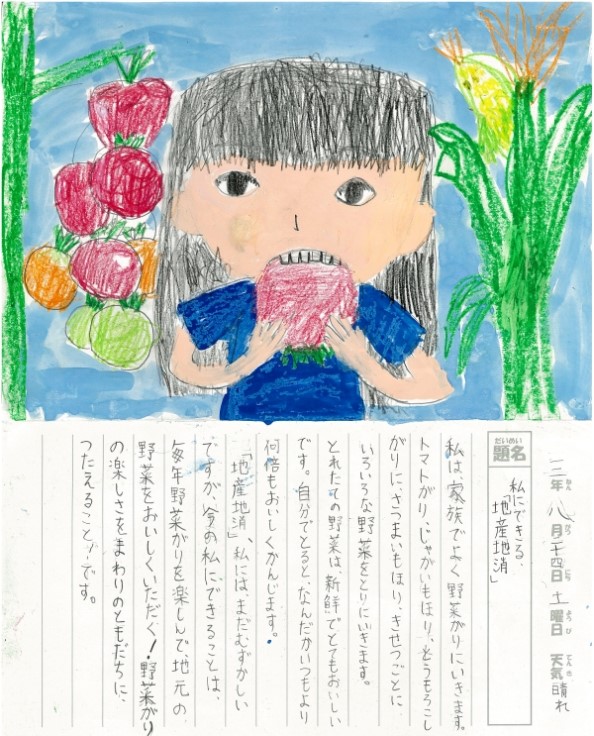 三年 八月二十四日 土曜日 天気 晴れ
ねん がつ にち ようび てんき
だいめい
題名
私にできる、
「地産地消」
私は家族でよく野菜がりにいきます。
トマトがり、じゃがいもほり、とうもろこし
がりに、さつまいもほり、きせつごとに
いろいろな野菜をとりにいきます。
とれたての野菜は、新鮮でとてもおいしい
です。自分でとると、なんだかいつもより
何倍もおいしくかんじます。
「地産地消」、私には、まだむずかしい
ですが、今の私にできることは、
毎年野菜がりを楽しんで、地元の
野菜をおいしくいただく！野菜がり
の楽しさをまわりのともだちに、
つたえること！です。